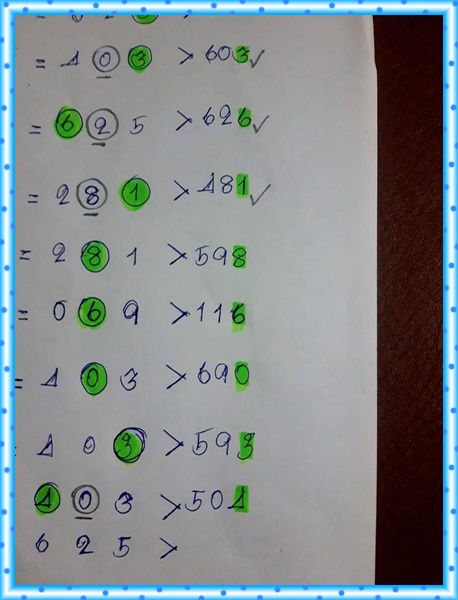 = 4 0 3 > 603 ✓
= 6 2 5 > 626 ✓
= 2 8 1 > 481 ✓
= 2 8 1 > 598
= 0 6 9 > 116
= 4 0 3 > 690
4 0 3 > 593
4 0 3 > 504
6 2 5 >